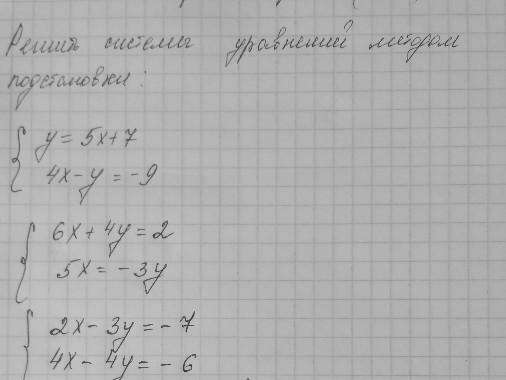 Решить системы уравнений методом
подстановки:
y = 5x+7
4x-y = -9
6x+4y = 2
5x = -3y
2x-3y = -7
4x-4y = -6